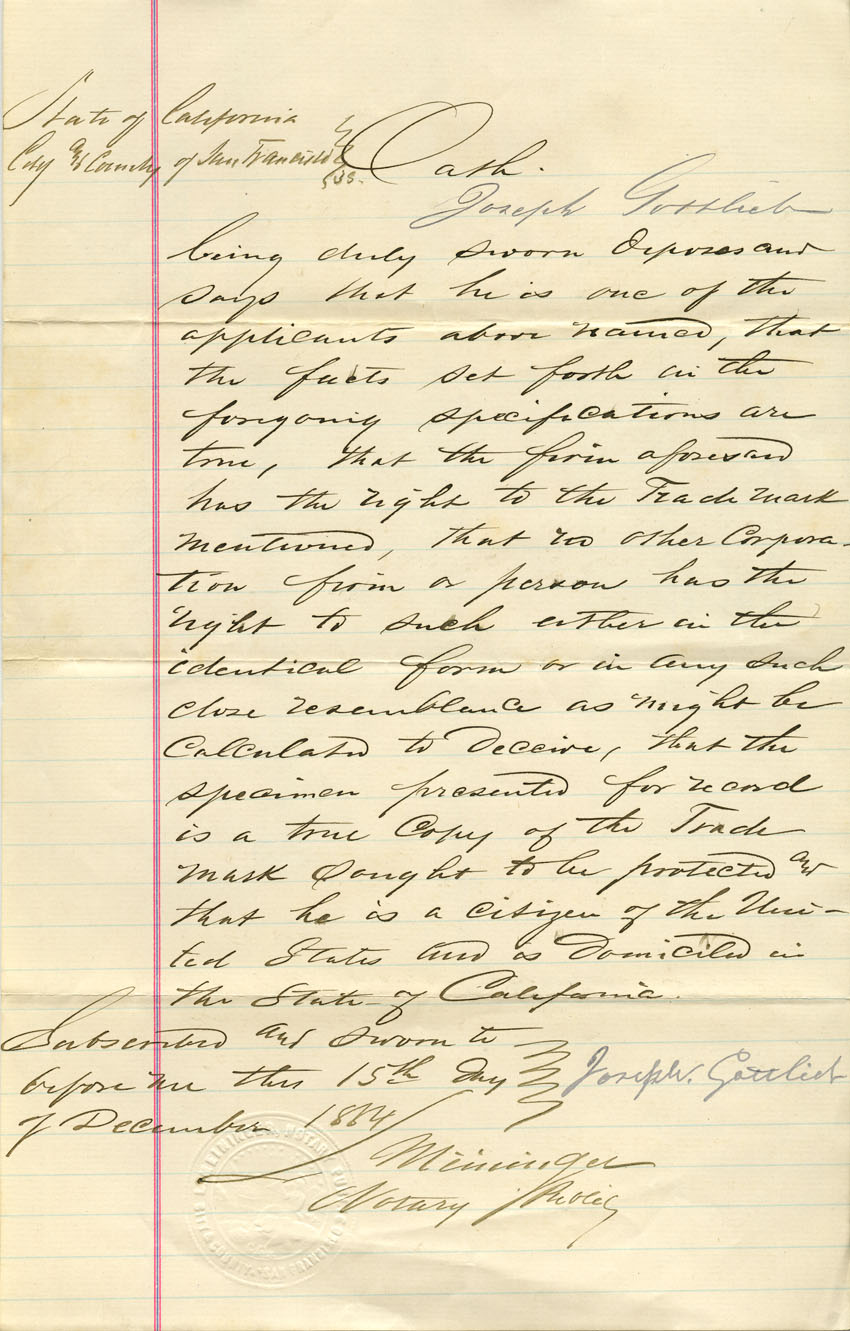 State of California
City and County of San Francisco } ss.
Oath.
Joseph Gottlieb
being duly sworn deposes and
says that he is one of the
applicants above named, that
the facts set forth in the
foregoing specifications are
true, that the firm aforesaid
has the right to the Trade Mark
mentioned, that no other Corpora-
tion firm or person has the
right to such either in the
identical form or in any such
close resemblance as might be
Calculated to Deceive, that the
specimen presented for record
is a true Copy of the Trade
Mark Sought to be protected and
that he is a citizen of the Uni-
ted States and is Domiciled in
the State of California.
Subscribed and sworn to
before me this 15th day
of December 1884
Joseph Gottlieb
Meininger
Notary Public
NOTARY PUBLIC
SAN FRANCISCO